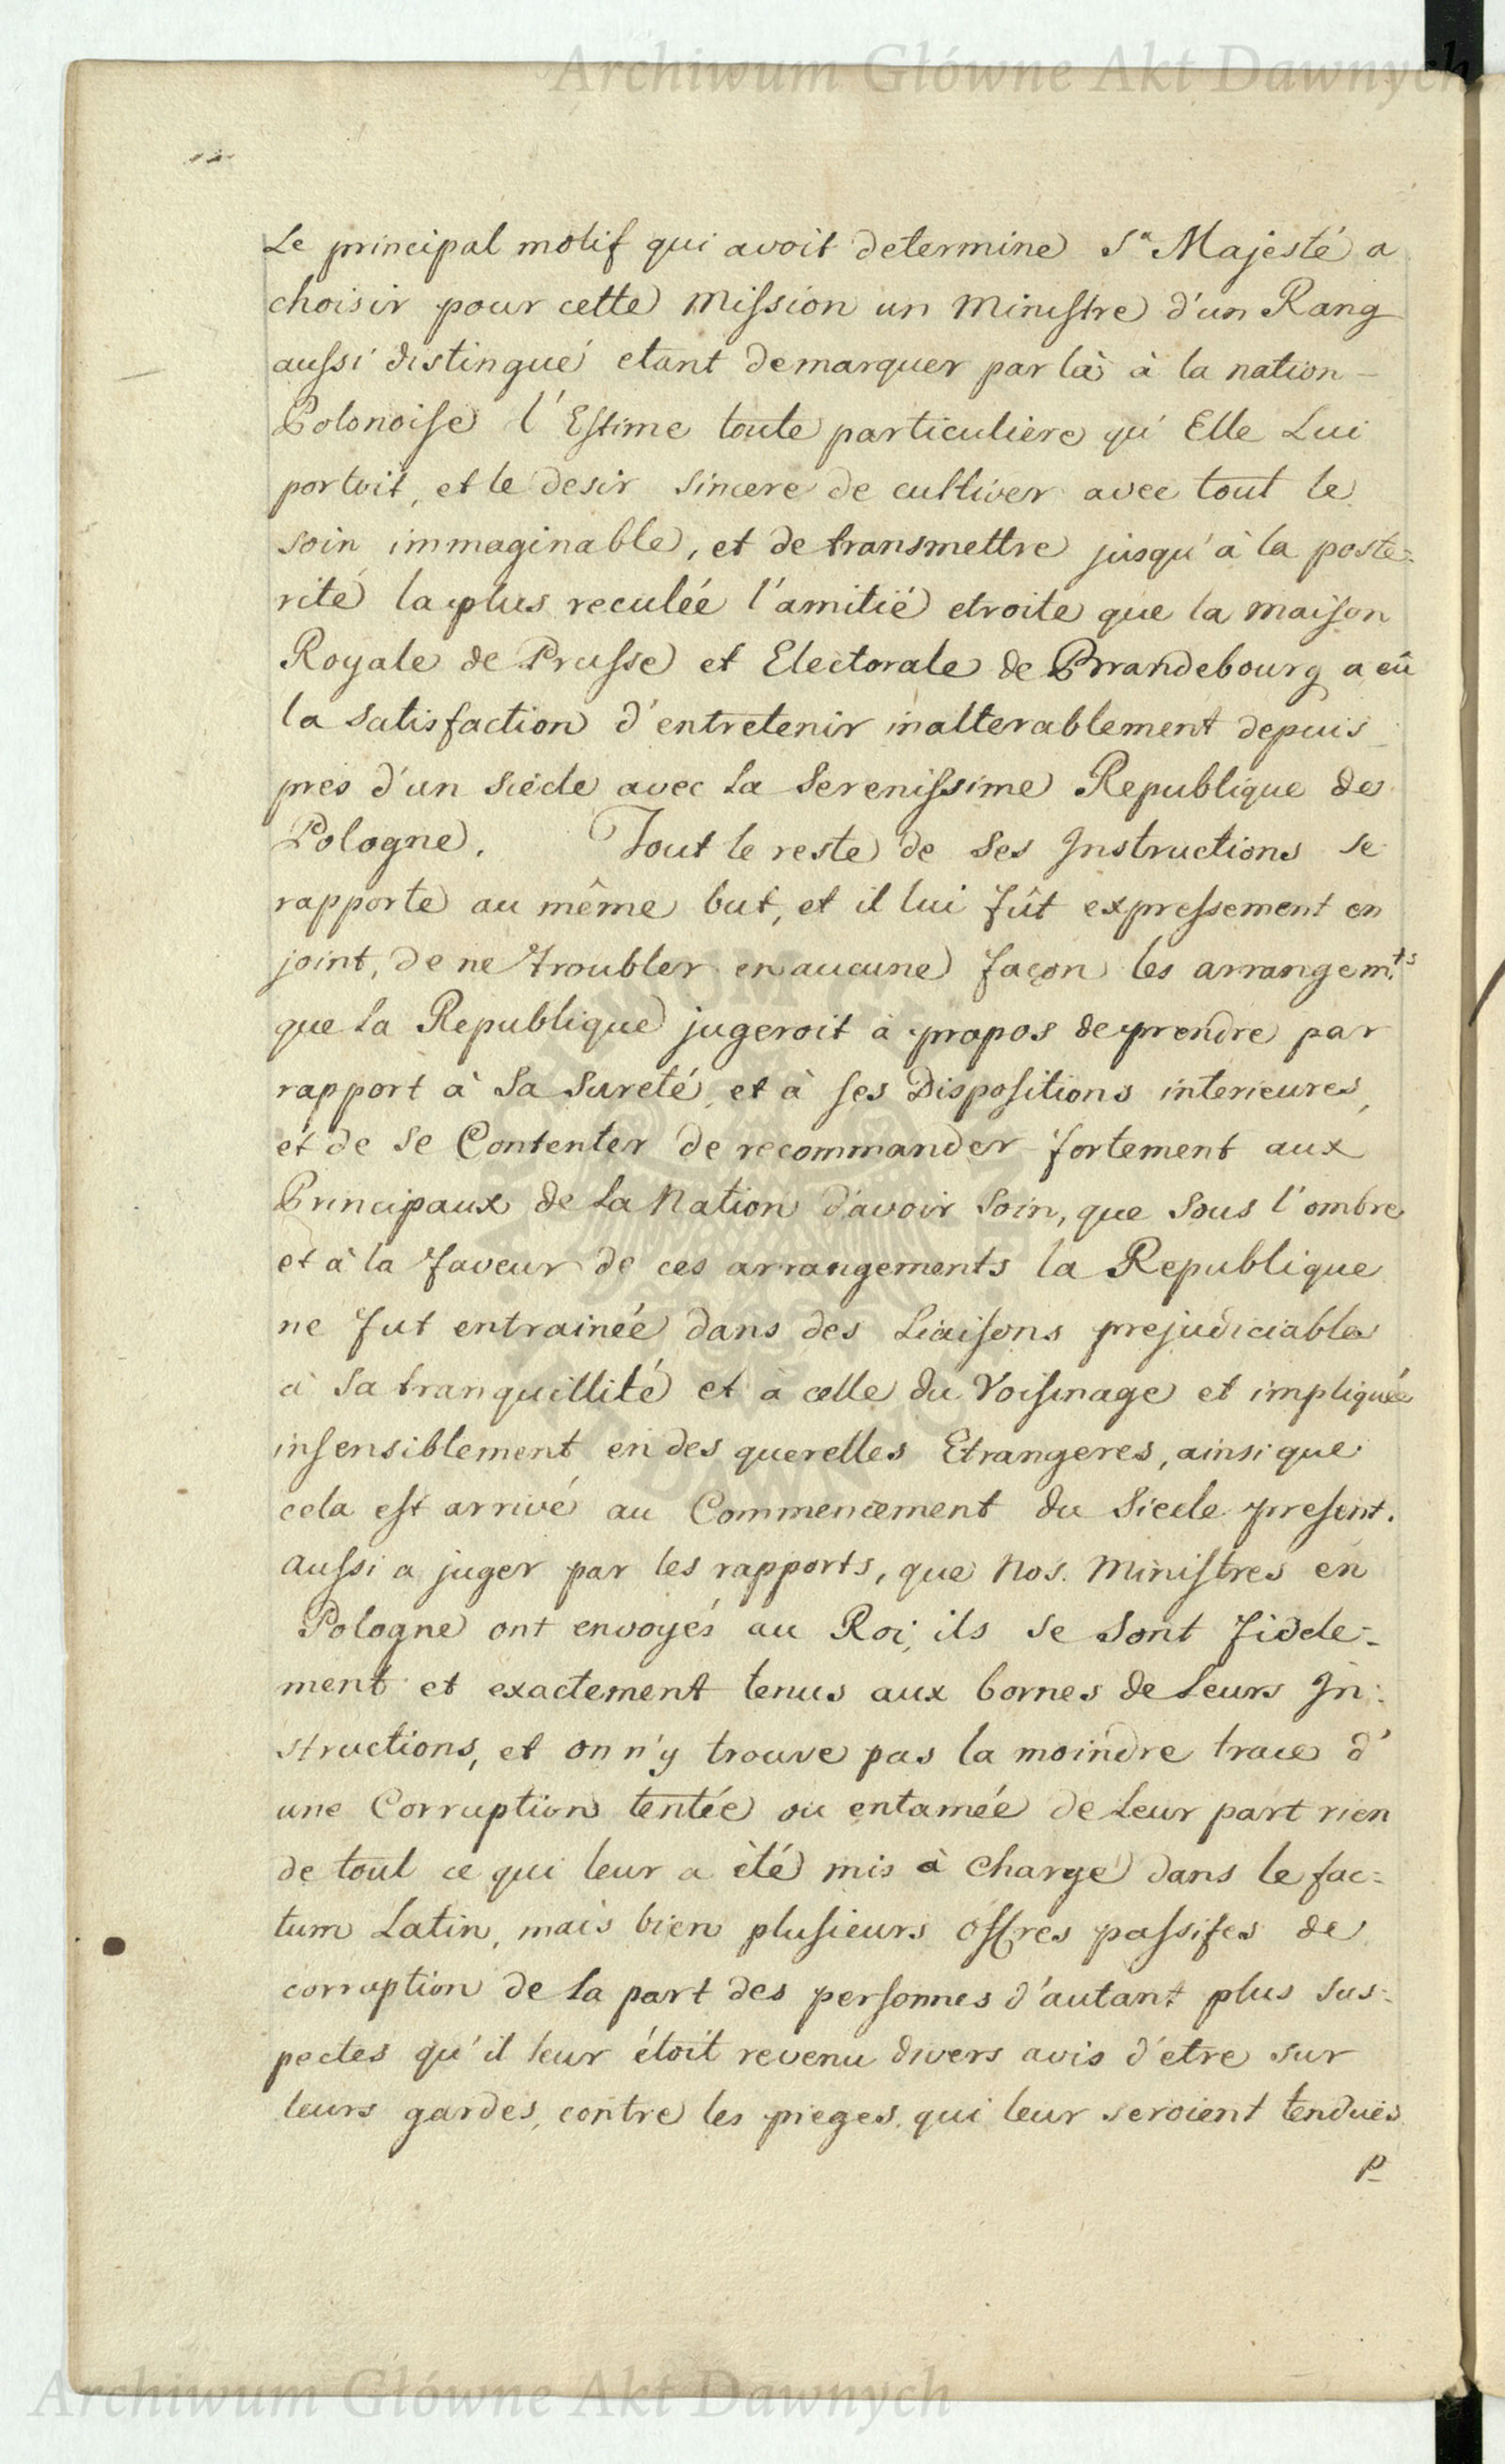 Archiwum Główne Akt Dawnych
Le principal motif qui avoit determine Sa Majesté a
choisir pour cette Mission un Ministre d'un Rang
aussi distingué etant demarquer par là à la nation
Polonoise l'Estime toute particuliere qu'Elle Lui
portoit, et le desir sincere de cultiver avec tout le
soin immaginable, et de transmettre jusqu'à la poste=
rité la plus reculée l'amitié etroite que la maison
Royale de Prusse et Electorale de Brandebourg a eû
la satisfaction d'entretenir inalterablement depuis
pres d'un siecle avec la Serenissime Republique de
Pologne. Tout le reste de ses Instructions se
rapporte au même but, et il lui fût expressement en
joint, de ne troubler en aucune façon les arrangem.ts
que la Republique jugeroit à propos de prendre par
rapport à Sa Sureté et à ses Dispositions interieures,
et de se Contenter de recommander fortement aux
Principaux de la Nation d'avoir soin, que sous l'ombre
et à la faveur de ces arrangements la Republique
ne fut entrainée dans des Liaisons prejudiciables
à Sa tranquillité et à celle du Voisinage et impliquée
insensiblement en des querelles Etrangeres, ainsi que
cela est arrivé au Commencement du Siecle present.
aussi a juger par les rapports, que Nos. Ministres en
Pologne ont envoyés au Roi, ils se sont fidele=
ment et exactement tenus aux bornes de Leurs In=
structions, et on n'y trouve pas la moindre trace d'
une Corruption tentée ou entamée de Leur part rien
de tout ce qui leur a èté mis à charge dans le fac=
tum Latin, mais bien plusieurs offres passifes de
corruption de la part des personnes d'autant plus sus=
pectes qu'il leur étoit revenu divers avis d'etre sur
leurs gardes, contre les pieges qui leur seroient tendues
p
Archiwum Główne Akt Dawnych